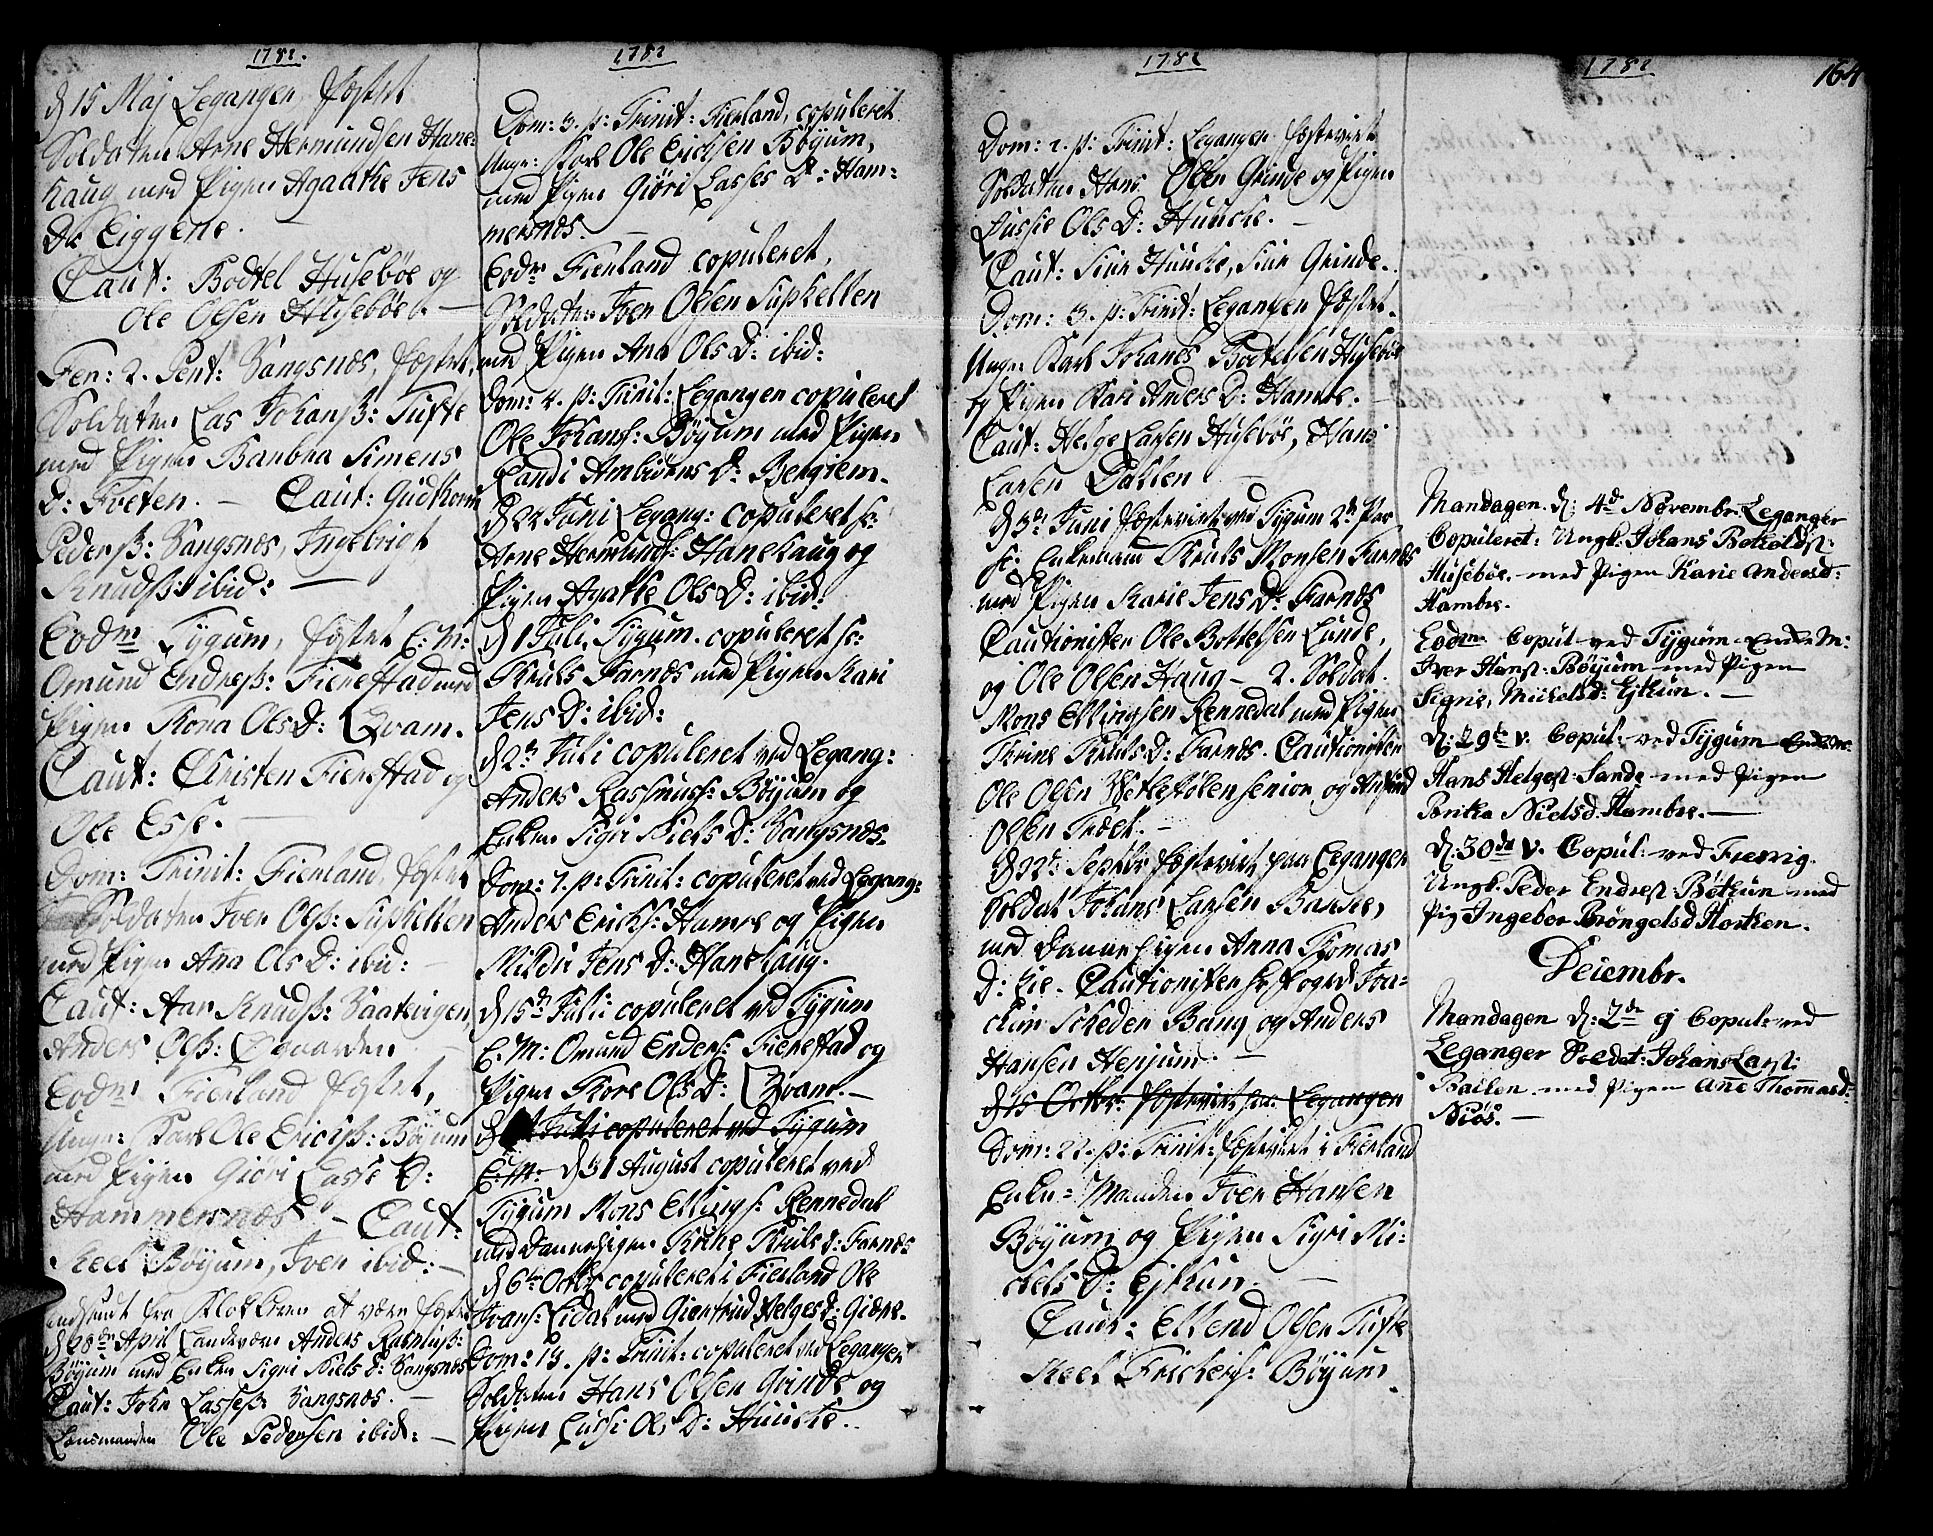 1782.
d 15 Maj Leganger, fæstet
Soldaten Arne Hermundsen Hane-
haug med Pigen Agathe Jens
Dr Eiggene.
Caut: Bodtel Husebøe og
Ole Olsen Husebøe. —
Fer: 2. Pent: Vangsnæs, fæstet,
Soldaten Las Johanß: Tufte
med Pigen Barbra Simens
D: Foeten. — Caut: Gudtorm
Pederß: Vangsnæs, Ingebrigt
Knudß: ibid: —
Eodm Tygum, fæstet E: M:
Omund Endreß: Fierestad med
Pigen Thora Ols D: Qvam.
Caut: Christen Fierestad og
Ole Esse. —
Dom: Trinit: Fierland, fæstet
Soldaten Iver Olß: Suphellen
med Pigen Ana Ols D: ibid: —
Caut: Aar Knudß: Vaatevigen
Anders Olß: Øygaarden —
Eodm Fierland fæstet,
Unge: Karl Ole Erichß: Bøyum
med Pigen Giøri Lasse D:
Hammersnæs — Caut:
Keel Bøyum, Iver ibid: —
indsendt fra Klokkeren at være fæstet
d 28de April Landværn Anders Rasmusß:
Bøyum med Enken Sigri Niels D: Vangsnæs
Caut: John Lasseß: Vangsnæs. —
Lensmanden Ole Pedersen ibid: —
1782
Dom: 3. p: Trinit: Fierland, copuleret
Unge: Karl Ole Erichsen Bøyum,
med Pigen Giøri Lasses D: Ham-
mersnæs. —
Eodm Fierland copuleret,
Soldaten Iver Olsen Suphellen
med Pigen Ana Ols D: ibid:
Dom: 4. p: Trinit: Leganger copuleret
Ole Johanß: Bøyum med Pigen
Randi Ambiørns D: Bergiem.
d 24 Juni Legang: copuleret S:
Arne Hermunds: Hanehaug og
Pigen Agathe Ols D: ibid:
d 1 Juli, Tygum copuleret S:
Truls Farnæs med Pigen Kari
Jens D: ibid:
d 2de Juli copuleret ved Legang:
Anders Rasmuss: Bøyum og
Enken Sigri Niels D: Vangsnæs.
Dom: 7. p: Trinit: copuleret ved Legang:
Anders Erichs: Hamre og Pigen
Mildri Jens D: Hanehaug.
d 15de Juli copuleret ved Tygum
E: M: Omund Enders: Fierestad og
Pigen Thore Ols D: Qvam. —
d Juli copuleret ved Tygum
E: M: d 31 August copuleret ved
Tygum Mons Ellings: Rennedal
med Pigen Thrine Truls D: Farnæs
d 6te Octbr copuleret i Fierland Ole
Ivars: Lidal med Giertrud Helges D: Giære.
Dom: 19. p: Trinit: copuleret ved Leganger
Soldaten Hans Olsen Grinde og
Pigen Lussi Ols D: Huuche. —
1782
Dom: 2. p: Trinit: Leganger fæstevirt
Soldaten Hans Olsen Grinde og Pigen
Lussie Ols D: Huuche. —
Caut: Siur Huuche, Siur Grinde.
Dom: 3. p: Trinit: Leganger fæstet.
Unge Karl Johanes Bodtelsen Husebøe
og Pigen Kari Anders D: Hamre. —
Caut: Helge Larsen Husebøe, Hans
Larsen —
d 3de Juni fæstevirt ved Tygum 2de Par
S: Enkemand Truls Monsen Farnæs
med Pigen Karie Jens D: Farnæs
Cautionister Ole Bottelsen Lunde,
og Ole Olsen Haug — 2. Soldat
Mons Ellingsen Rennedal med Pigen
Thrine Truls D: Farnæs. Cautionister
Ole Olsen Wetlesølen senior og
Olsen Træet. —
d 22de Septbr fæstevirt paa Leganger
Soldat Johans Larsen Balsee,
med Pigen Anna Thomas
D: Cautionister
Scheder Bang og Anders
Hansen Henjum. —
d 15 Octbr: fæstevirt paa Leganger
Dom: 22. p: Trinit: fæstevirt i Fierland
Enke-Manden Iver Hansen
Bøyum og Pigen Sigri Mi-
chels D: Ejthun. —
Caut: Ellend Olsen Tufte
Keel Frichers: Bøyum
1782
164
Mandagen d: 4de Novembr Leganger
Copuleret: Ungk: Johans Botholdst:
Husebøe med Pigen Karie Andersd:
Hambre.
Eodm Copul ved Tygum Enke M:
Iver Hanst: Bøyum med Pigen
Signe, Mickelsd: Ejthun. —
d: 29de v. Copul: ved Tygum
Hans Helgest: Sande med Pigen
Brithe Nielsd: Hambre. —
d: 30de v. Copul: ved Fresvig.
Ungk. Peder Endrest: Bøthun med
Pig Ingebor Brøngelsd Hotthen.
Deiembr.
Mandagen d: 2de ej Copul: ved
Leganger Soldat: Johans Larst:
Balsen med Pigen Ane Thomasd:
Niøs. —